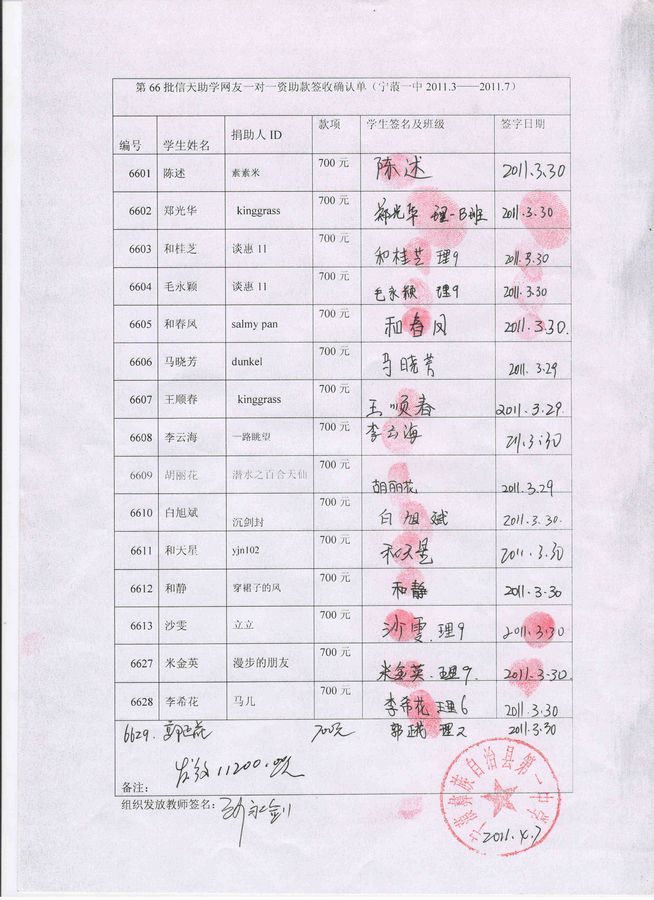 第 66 批信天助学网友一对一资助款签收确认单（宁蒗一中 2011.3——2011.7）
编号 学生姓名 捐助人 ID 款项 学生签名及班级 签字日期
6601 陈述 素素米 700 元 陈述 2011.3.30
6602 郑光华 kinggrass 700 元 郑光华 理-B班 2011.3.30
6603 和桂芝 谈惠 11 700 元 和桂芝 理9 2011.3.30
6604 毛永颖 谈惠 11 700 元 毛永颖 理9 2011.3.30
6605 和春凤 salmy pan 700 元 和春凤 2011.3.30.
6606 马晓芳 dunkel 700 元 马晓芳 2011.3.29
6607 王顺春 kinggrass 700 元 王顺春 2011.3.29.
6608 李云海 一路眺望 700 元 李云海 3.30
6609 胡丽花 潜水之百合天仙 700 元 胡丽花 2011.3.29
6610 白旭斌 沉剑封 700 元 白旭斌 2011.3.30.
6611 和天星 yjn102 700 元 和天星 2011.3.30
6612 和静 穿裙子的风 700 元 和静 2011.3.30
6613 沙雯 立立 700 元 沙雯.理9 2011.3.30
6627 米金英 漫步的朋友 700 元 米金英.理9. 2011.3.30.
6628 李希花 马儿 700 元 李希花 理6 2011.3.30
6629. 700元 郭 理2 2011.3.30
发放11200.
备注：
组织发放教师签名：
宁蒗彝族自治县第一中学
2011.4.7